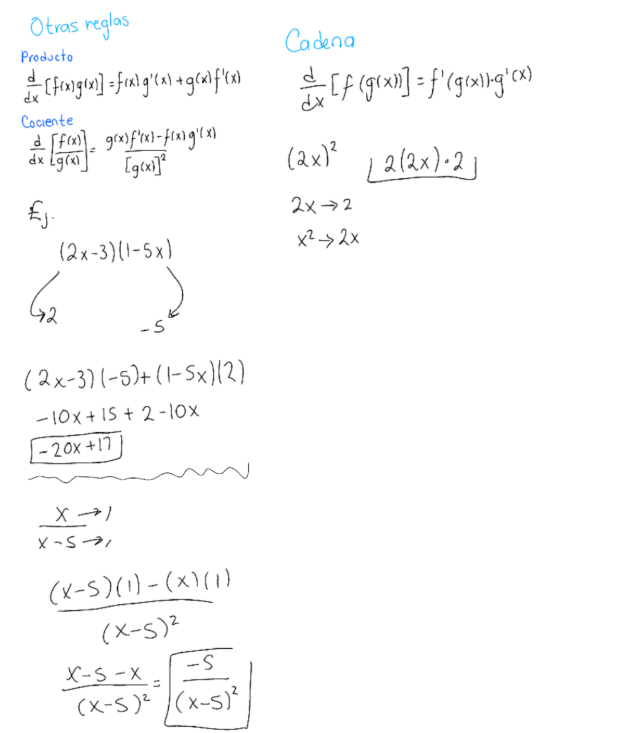 Otras reglas
Producto
d/dx [f(x)g(x)] = f(x)g'(x)+g(x)f'(x)
Cociente
d/dx [f(x)/g(x)] = g(x)f'(x)-f(x)g'(x)/[g(x)]²
Ej.
(2x-3)(1-5x)
2
-5
(2x-3)(-5)+(1-5x)(2)
-10x+15+2-10x
-20x+17
x →1
x-5→1
(x-5)(1)-(x)(1)
(x-5)²
x-5-x/(x-5)² = -5/(x-5)²
Cadena
d/dx [f(g(x))] = f'(g(x))·g'(x)
(2x)² 2(2x)·2
2x→2
x²→2x